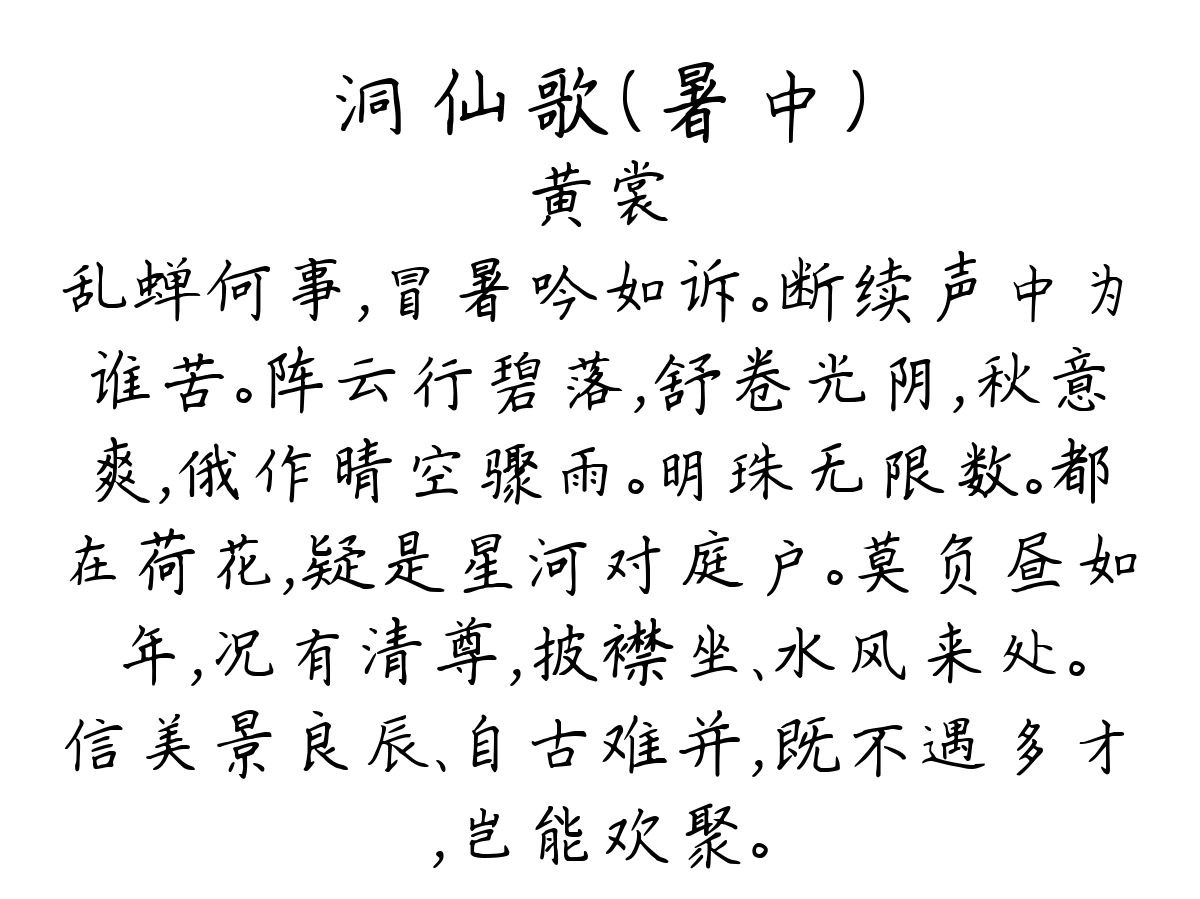 洞仙歌(暑中)
黄裳
乱蝉何事,冒暑吟如诉。断续声中为
谁苦。阵云行碧落,舒卷光阴,秋意
爽,俄作晴空骤雨。明珠无限数。都
在荷花,疑是星河对庭户。莫负昼如
年,况有清尊,披襟坐、水风来处。
信美景良辰、自古难并,既不遇多才
,岂能欢聚。